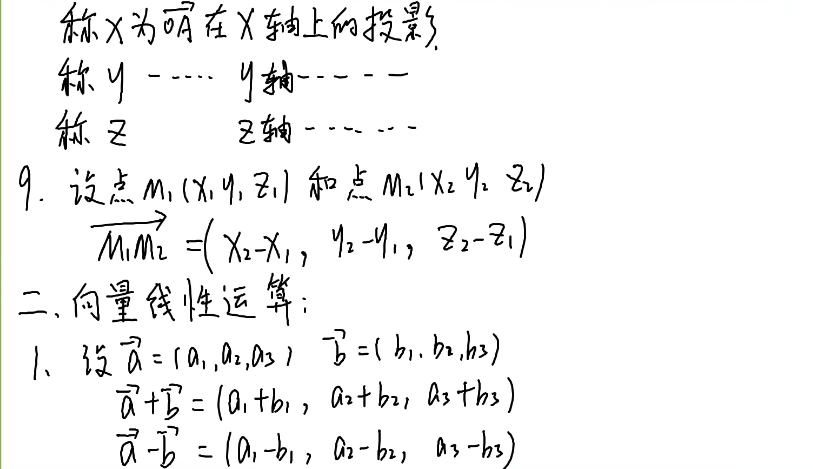 称X为OA在X轴上的投影.
称y ----- y轴-----
称z z轴------
9. 设点M₁(x₁ y₁ z₁)和点M₂(x₂ y₂ z₂)
M₁M₂=(x₂-x₁, y₂-y₁, z₂-z₁)
二、向量线性运算:
1、设a=(a₁,a₂,a₃) b=(b₁.b₂,b₃)
a+b=(a₁+b₁, a₂+b₂, a₃+b₃)
a-b=(a₁-b₁, a₂-b₂, a₃-b₃)